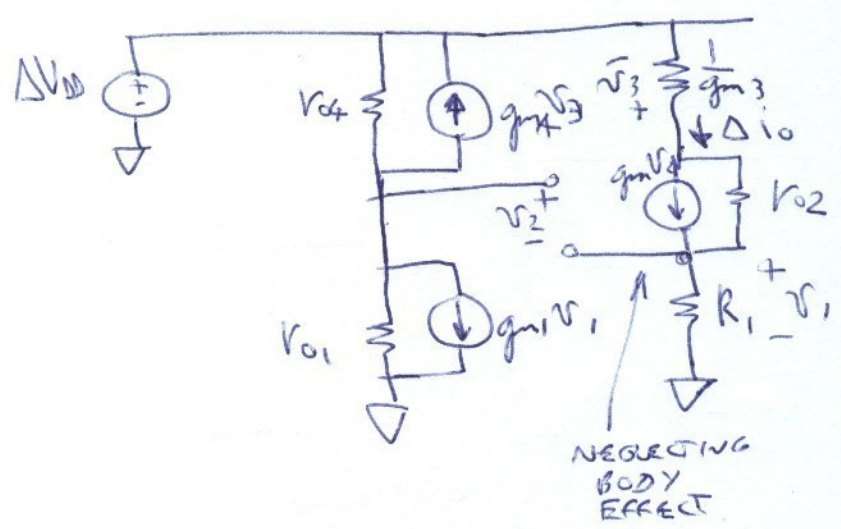 ΔV_DD
+
-
r_o4
g_m4 v_3
- v_3 +
1/g_m3
Δi_o
v_2
+
-
g_m v_2
r_o2
r_o1
g_m1 v_1
R_1
+
- v_1
NEGLECTING
BODY
EFFECT